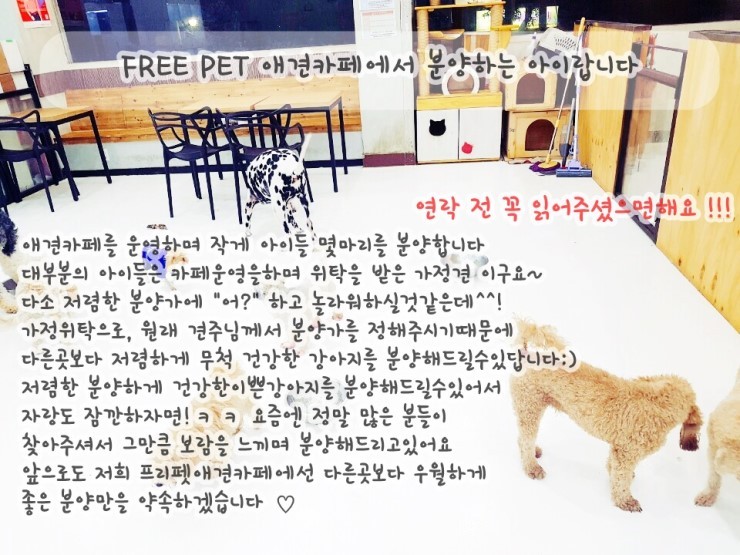 FREE PET 애견카페에서 분양하는 아이랍니다
연락 전 꼭 읽어주셨으면해요 !!!
애견카페를 운영하며 작게 아이들 몇마리를 분양합니다
대부분의 아이들은 카페운영을하며 위탁을 받은 가정견 이구요~
다소 저렴한 분양가에 "어?" 하고 놀라워하실것같은데^^!
가정위탁으로, 원래 견주님께서 분양가를 정해주시기때문에
다른곳보다 저렴하게 무척 건강한 강아지를 분양해드릴수있답니다:)
저렴한 분양하게 건강한이쁜강아지를 분양해드릴수있어서
자랑도 잠깐하자면! ㅋ ㅋ 요즘엔 정말 많은 분들이
찾아주셔서 그만큼 보람을 느끼며 분양해드리고있어요
앞으로도 저희 프리펫애견카페에선 다른곳보다 우월하게
좋은 분양만을 약속하겠습니다 ♡